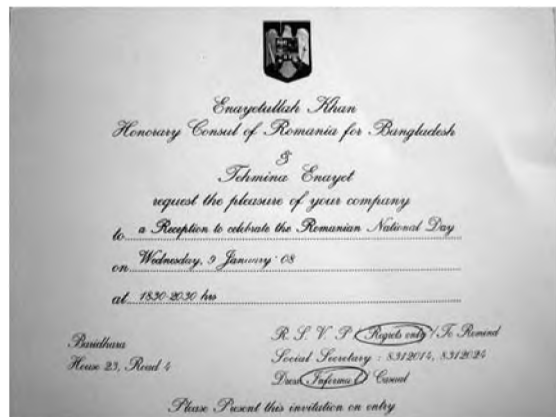 Enayetullah Khan
Honorary Consul of Romania for Bangladesh
&
Tehmina Enayet
request the pleasure of your company
to a Reception to celebrate the Romanian National Day
on Wednesday, 9 January '08
at 1830-2030 hrs
Baridhara
House 23, Road 4
R. S. V. P / Regrets only / To Remind
Social Secretary : 8312014, 8312024
Dress Informal / Casual
Please Present this invitation on entry